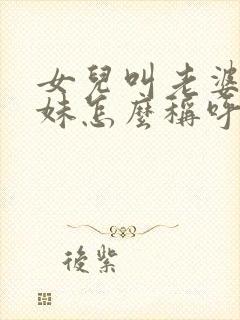 女兒叫老婆
妹怎麼稱呼
後紫